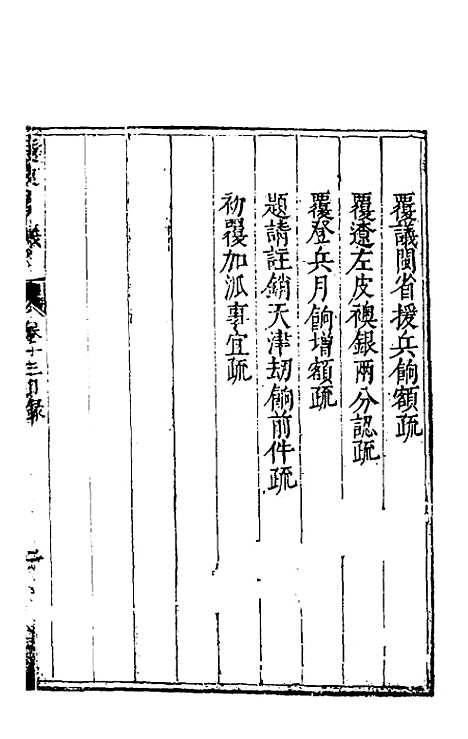 覆議閩省援兵餉額疏
覆遼左皮襖銀兩分認疏
覆登兵月餉增額疏
題請註銷天津刼餉前件疏
初覆加派事宜疏
卷十三目錄